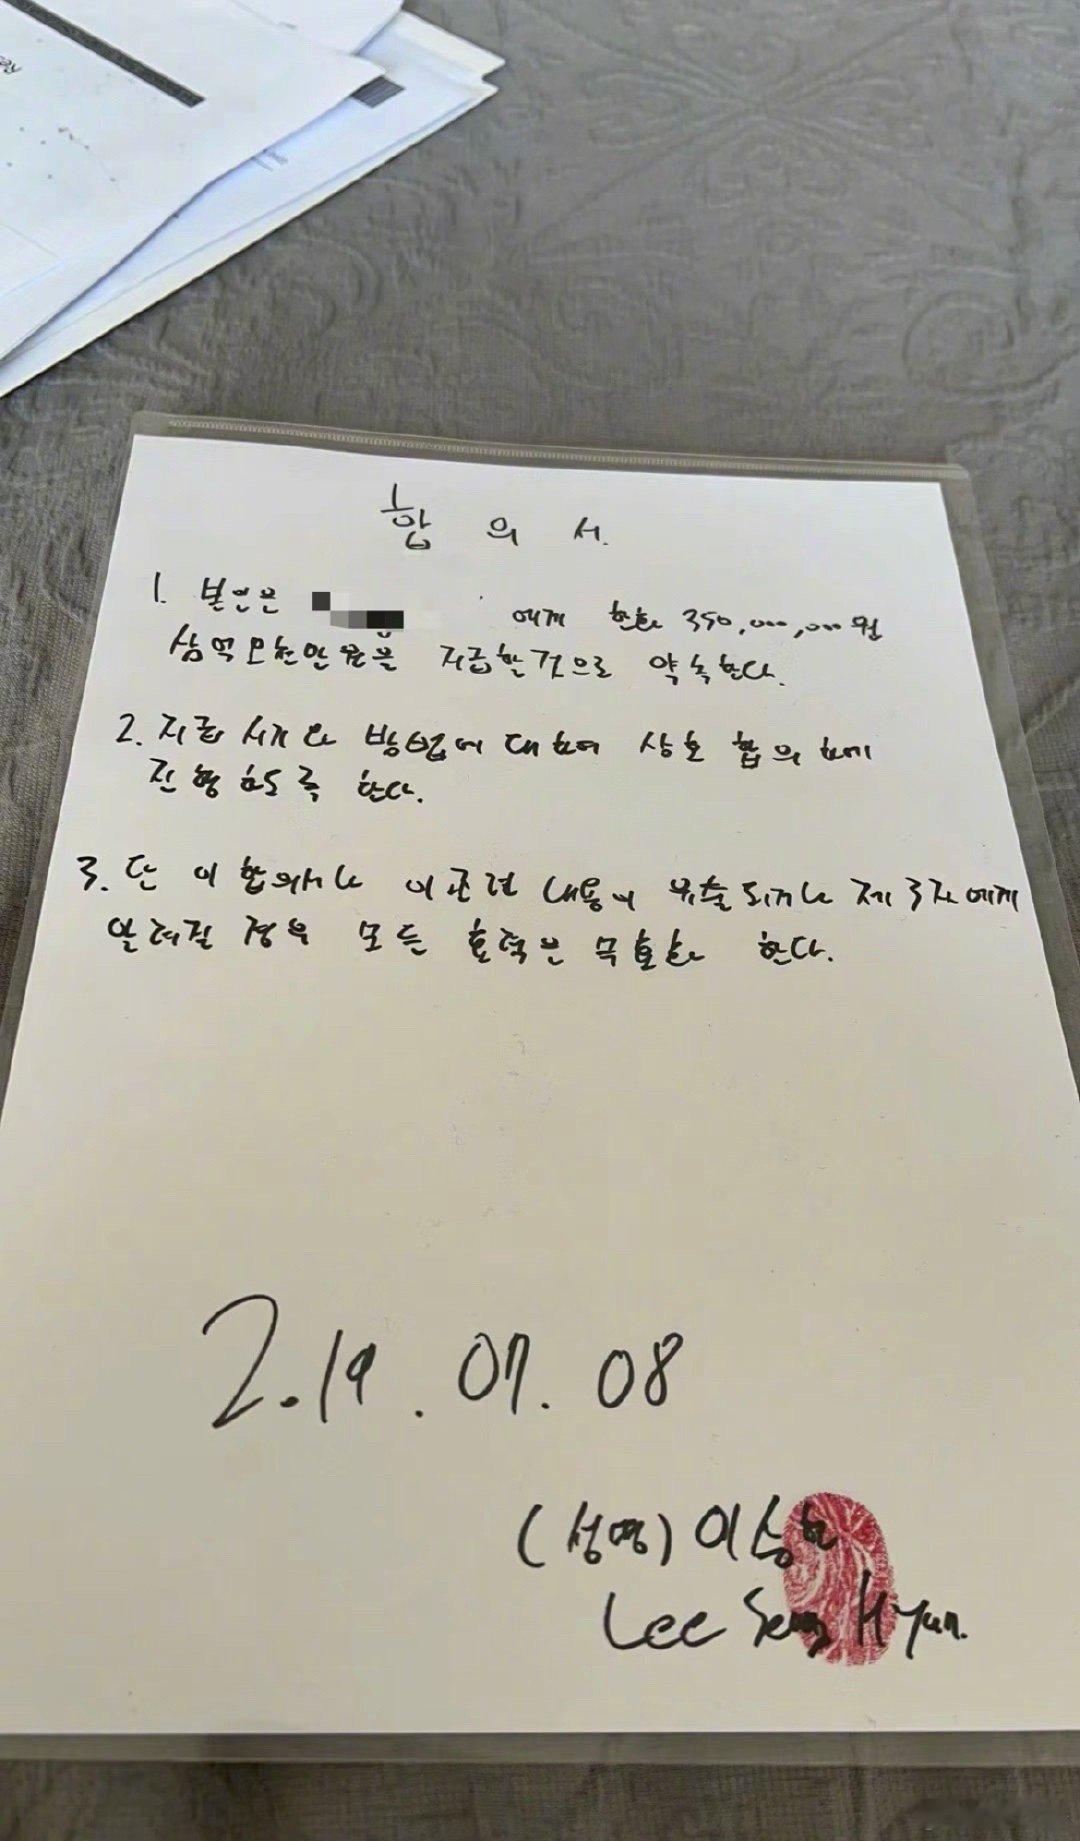 합 의 서.
1. 본인은 에게 한화 350,000,000원
삼억오천만원을 지급할것으로 약속한다.
2. 지급 시기와 방법에 대하여 상호 합의하에
진행하도록 한다.
3. 단 이 합의서나 이 관련 내용이 유출되거나 제3자에게
알려질 경우 모든 효력은 무효화 한다.
2.19.07.08
(성명) 이승현
Lee Seung Hyun.